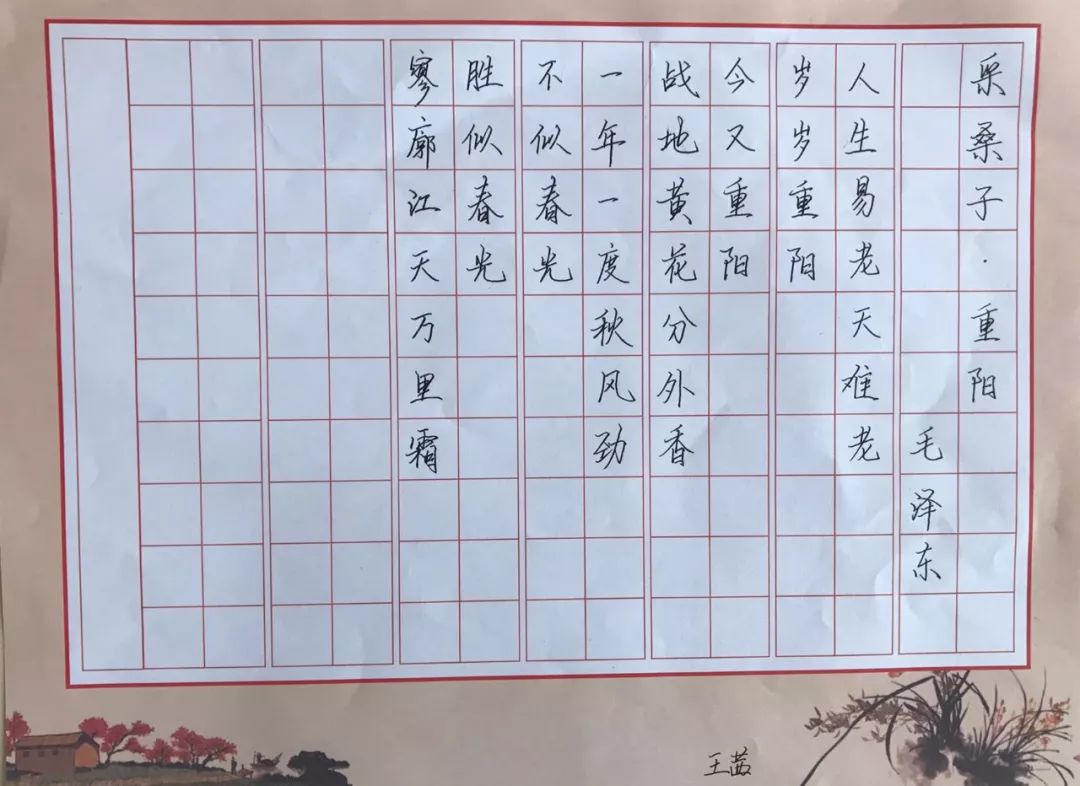 采桑子·重阳
毛泽东
人生易老天难老
岁岁重阳
今又重阳
战地黄花分外香
一年一度秋风劲
不似春光
胜似春光
寥廓江天万里霜
王茜